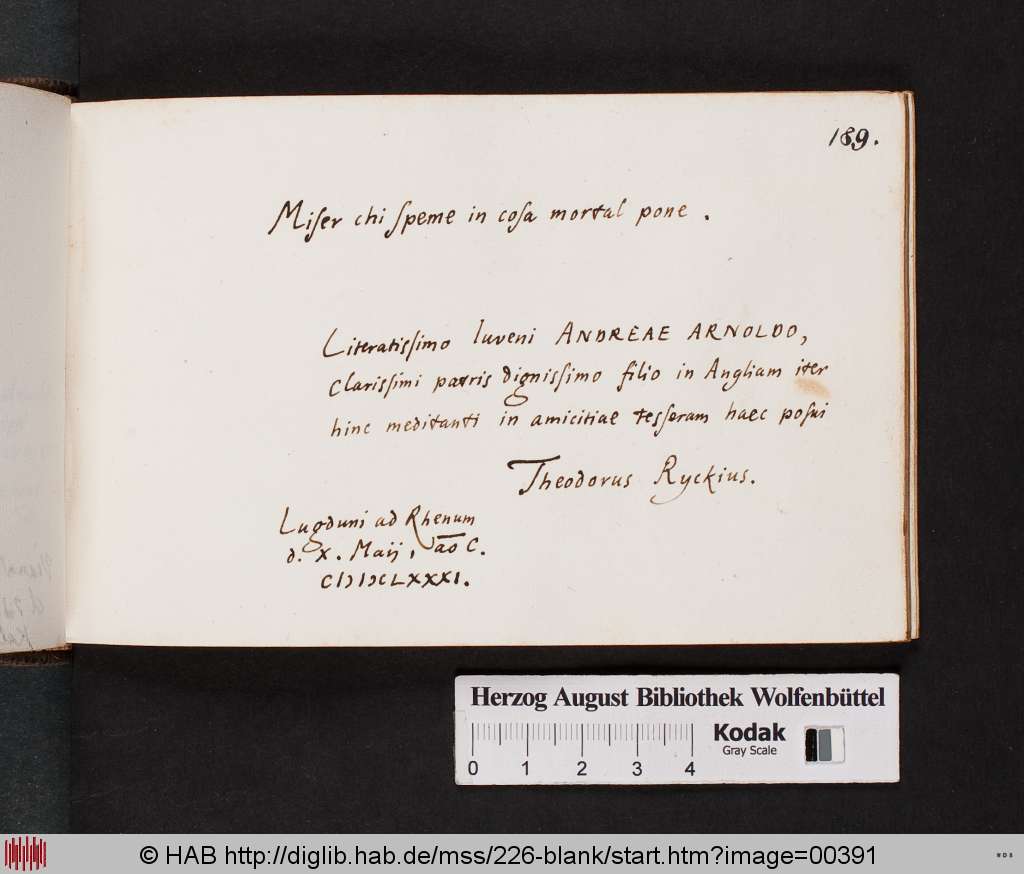 189.
Miſer chi ſpeme in coſa mortal pone .
Literatiſſimo Iuveni ANDREAE ARNOLDO,
clariſſimi patris digniſſimo filio in Angliam iter
hinc meditanti in amicitiae teſſeram haec poſui
Theodorus Ryckius.
Lugduni ad Rhenum
d. X. Maij, aō C.
CIƆ IƆCLXXXI.
Herzog August Bibliothek Wolfenbüttel
Kodak
Gray Scale
0 1 2 3 4
© HAB http://diglib.hab.de/mss/226-blank/start.htm?image=00391